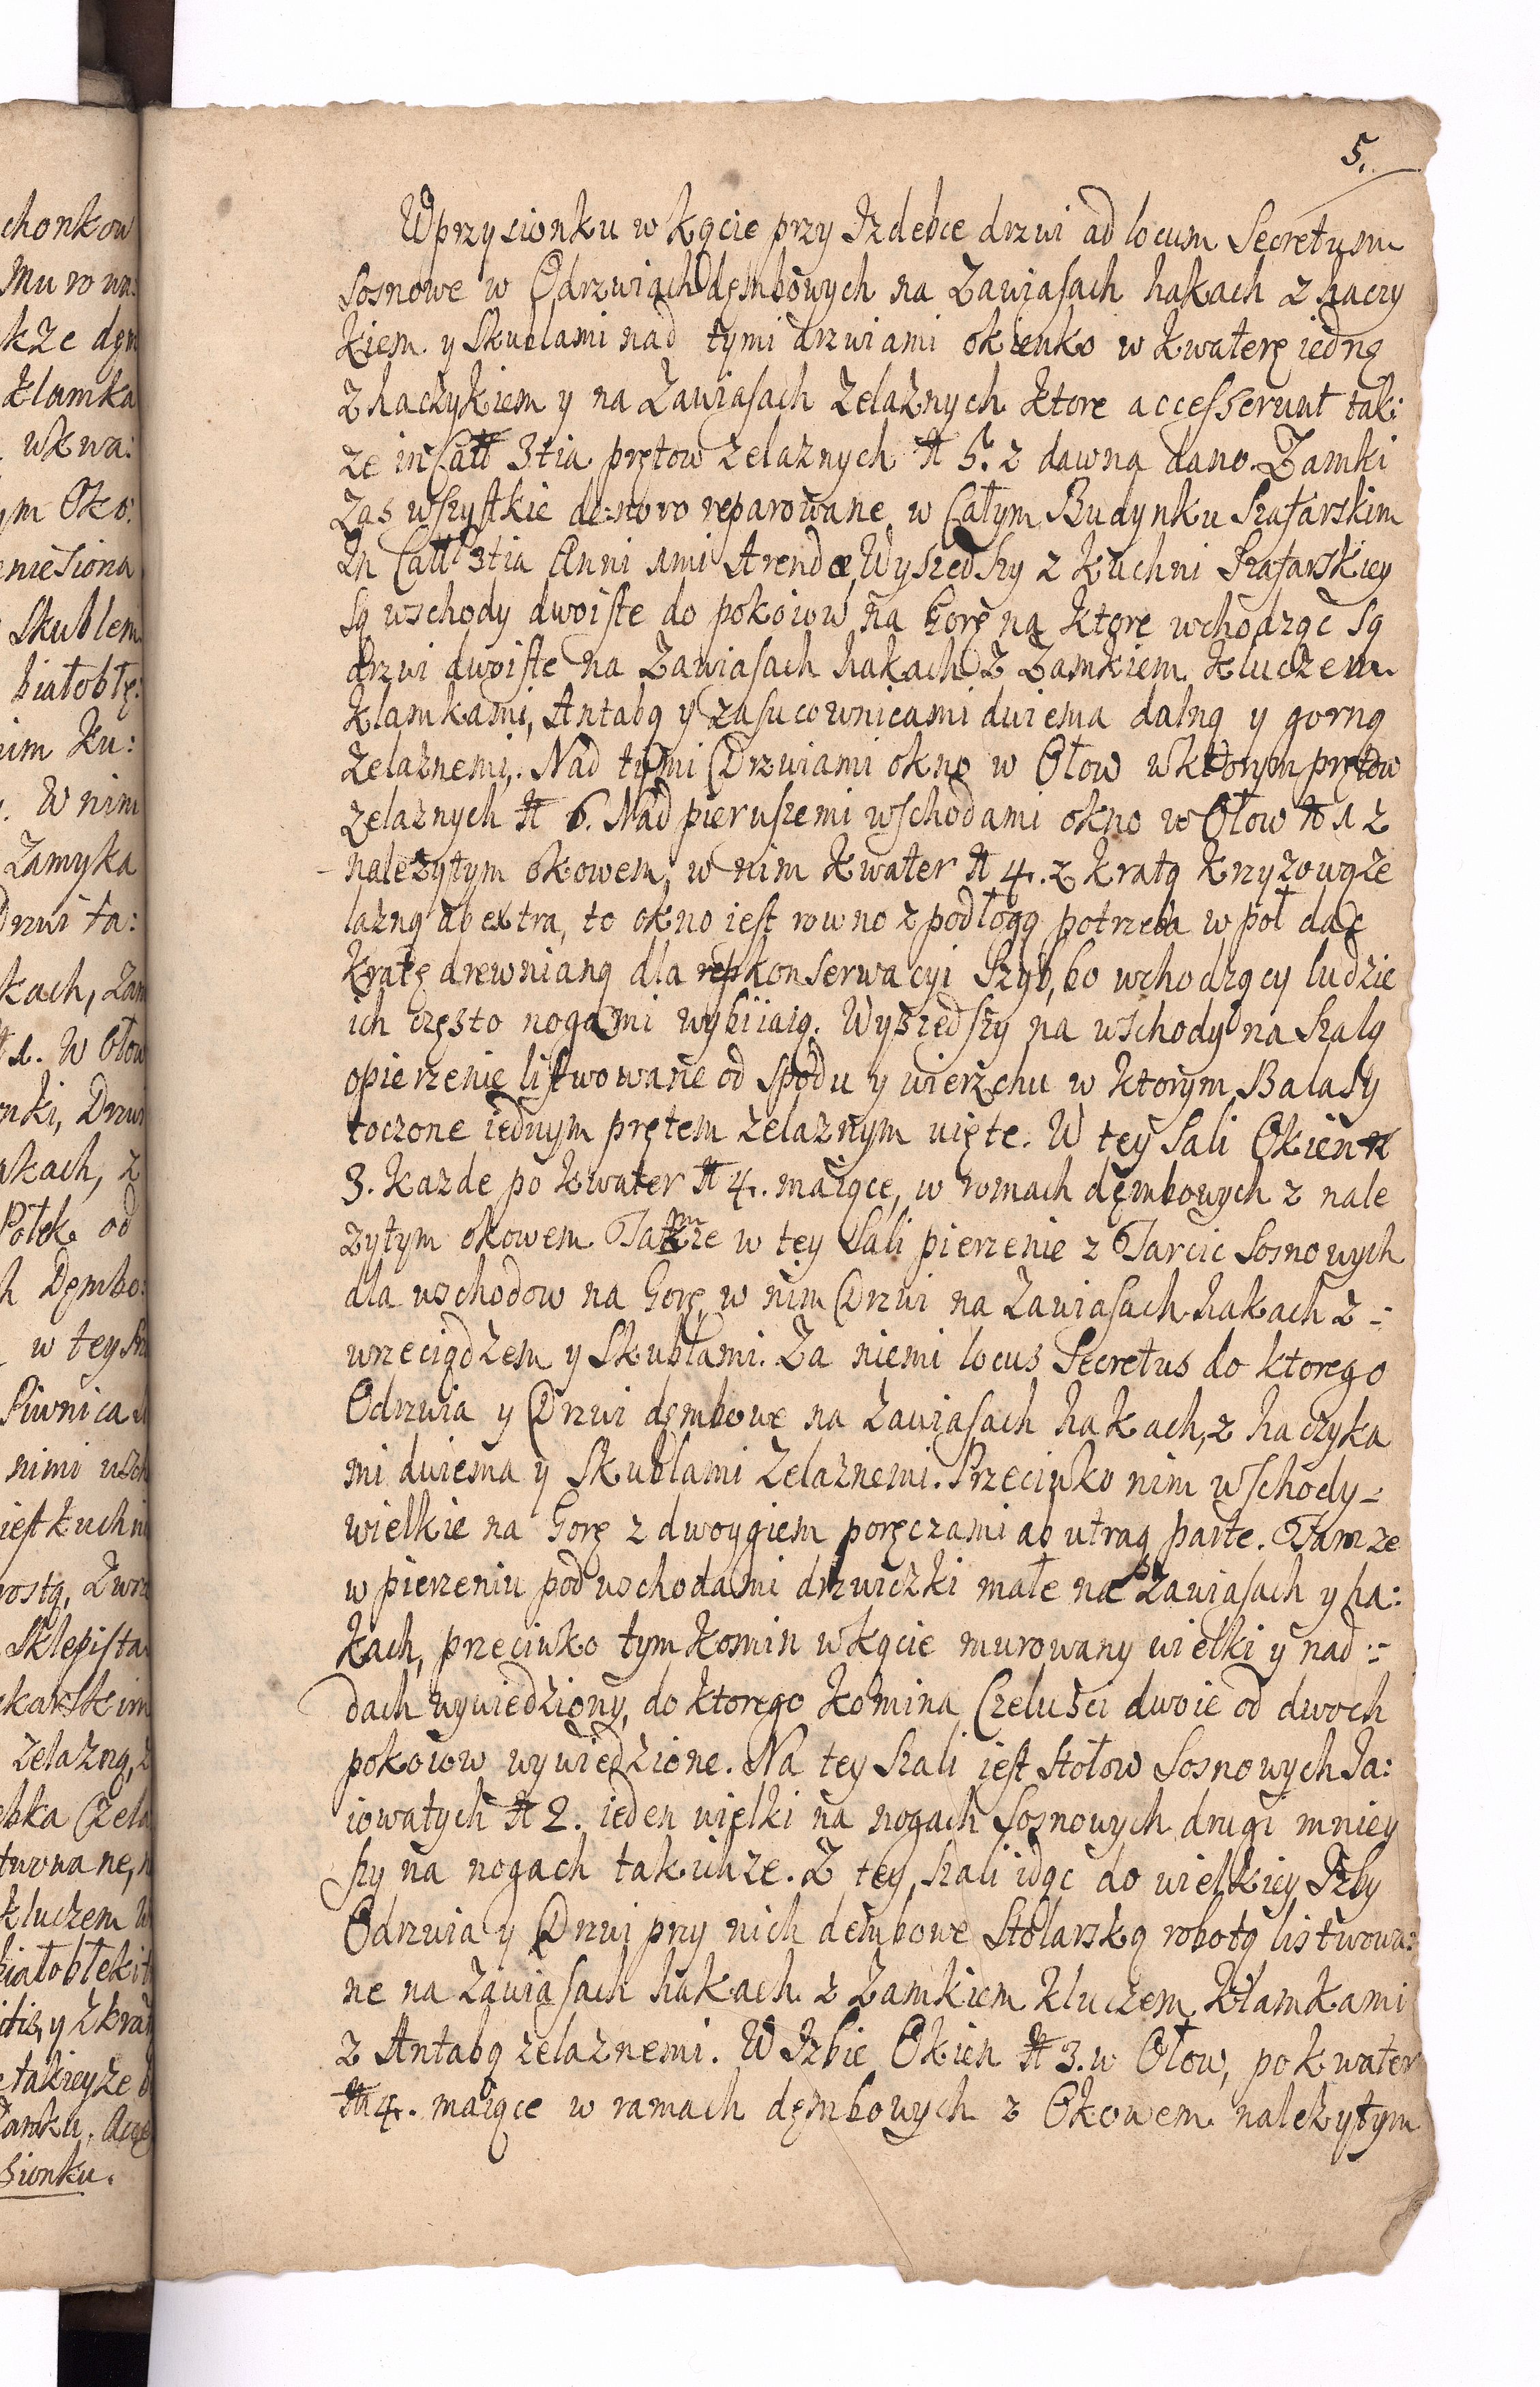 chonkow
Murowa:
kże dęm
klamka
wkwa:
ym Oko:
niesiona
Skublem
białobłę:
nim Ku:
W nim
Zamyka
Drzwi ta:
kach, Zam
1. W Ołow
nki, Drzwi
akach, z
Połek od
h Dembo:
w tey
Piwnica
nimi wsch
iest kuchni
Sklepista
żelazną, z
kluczem
białobłekit
y z krat
takieyże
Zamku.
sionku.
5.
W przysionku w kącie przy Izdebce drzwi ad locum Secretum
sosnowe w Odrzwiach dębowych na Zawiasach hakach z haczy
kiem y Skublami nad tymi drzwiami okienko w kwaterę iedną
z haczykiem y na Zawiasach żelaznych ktore accesserunt tak:
że in Catt 3tia prętow żelaznych # 5. z dawna dano. Zamki
Zas wszystkie de novo reparowane w Całym Budynku Szafarskim
In Catt 3tia Anni 1mi Arendæ, Wyszedszy z kuchni Szafarskiey
są wschody dwoiste do pokoiow na Gorę na ktore wchodząc są
drzwi dwoiste na Zawiasach hakach z Zamkiem kluczem
klamkami, Antabą y zasucownicami dwiema dalną y gorną
żelaznemi. Nad tymi Drzwiami okno w Ołow w ktorym prętow
żelaznych # 6. Nad pierwszemi wschodami okno w Ołow # 1 z
należytym okowem, w nim kwater # 4. z kratą krzyżową że
lazną ab extra, to okno iest rowno z podłogą potrzeba w poł dać
kratę drewnianą dla rep konserwacyi Szyb, bo wchodzący ludzie
ich często nogami wybiiaią. Wyszedszy na wschody na Salą
opierzenie listwowane od spodu y wierzchu w ktorym Balasy
toczone iednym prętem żelaznym uięte. W tey Sali Okien #
3. każde po kwater # 4. maiące, w ramach dębowych z nale
żytym okowem Tamże w tey Sali pierzenie z Tarcic Sosnowych
dla wschodow na Gorę, w nim Drzwi na Zawiasach hakach z -
wrzeciądzem y Skublami. Za niemi locus Secretus do ktorego
Odrzwia y Drzwi dembowe na zawiasach hakach, z haczyka
mi dwiema y Skublami żelaznemi. Przeciwko nim wschody -
wielkie na Gorę z dwoygiem poręczami ab utraq parte. Tamże
w pierzeniu pod wschodami drzwiczki małe na Zawiasach y ha:
kach, przeciwko tym komin w kącie murowany wielki y nad :-
dach wywiedziony, do ktorego komina Czeluści dwoie od dwoch
pokoiow wywiedzione. Na tey Szali iest Stołow Sosnowych Ja:
iowatych # 2. ieden wielki na nogach sosnowych drugi mniey
szy na nogach takichże. Z tey Szali idąc do wielkiey Izby
Odrzwia y Drzwi przy nich dembowe Stolarską robotą listwowa:
ne na Zawiasach hakach z Zamkiem kluczem klamkami
z Antabą żelaznemi. W Izbie Okien # 3. w Ołow, po kwater
# 4. maiące w ramach dembowych z Okowem należytym